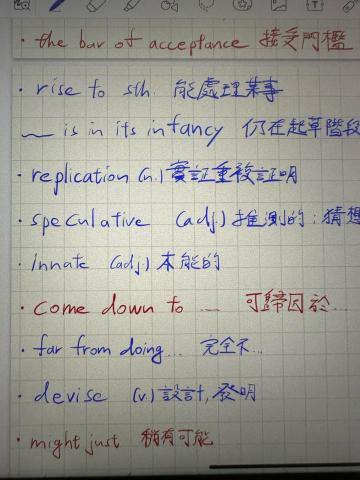 · the bar of acceptance 接受門檻
· rise to sth. 能處理某事
__ is in its infancy 仍在起草階段
· replication (n.) 實証重複証明
· speculative (adj.) 推測的; 猜想
· innate (adj.) 本能的
· come down to ... 可歸因於...
· far from doing... 完全不...
· devise (v.) 設計, 發明
· might just 稍有可能